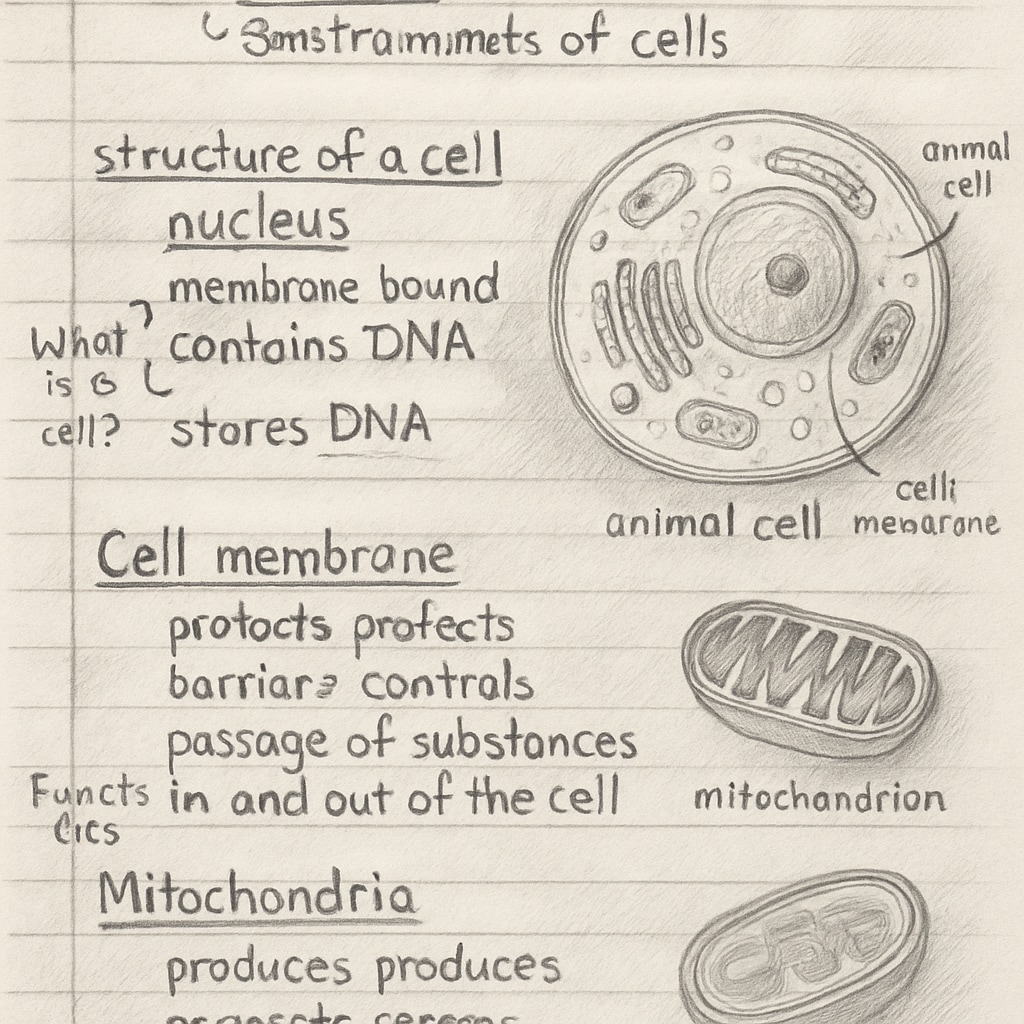 of cells
structure of a cell
nucleus
membrane bound
contains DNA
stores DNA
What
is
cell?
anmal
cell
animal cell
celli
Cell membrane
protocts profects
controls
passage of substances
in and out of the cell
Functs
mitochandrion
Mitochondria
produces produces